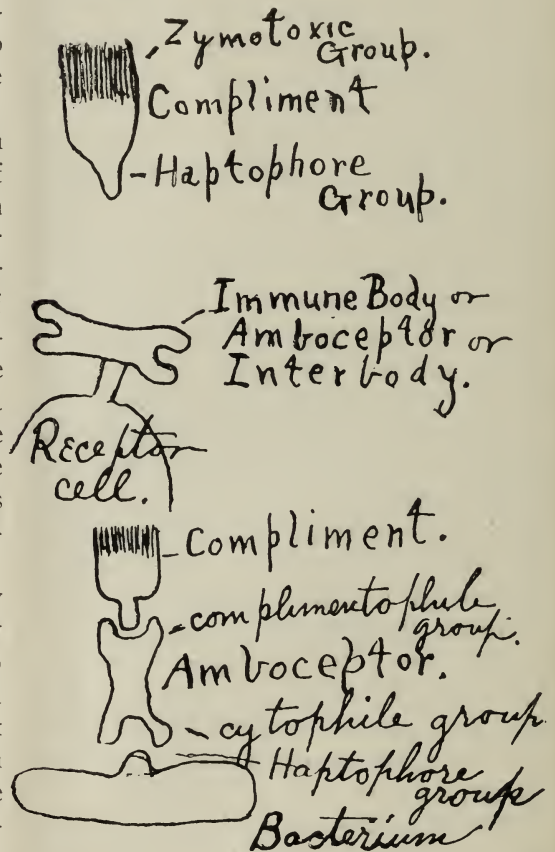 Zymotoxic
Group.
Compliment
Haptophore
Group.
Immune Body or
Amboceptor or
Interbody.
Receptor
cell.
Compliment.
complimentophile
group.
Amboceptor.
cytophile group
Haptophore
group
Bacterium